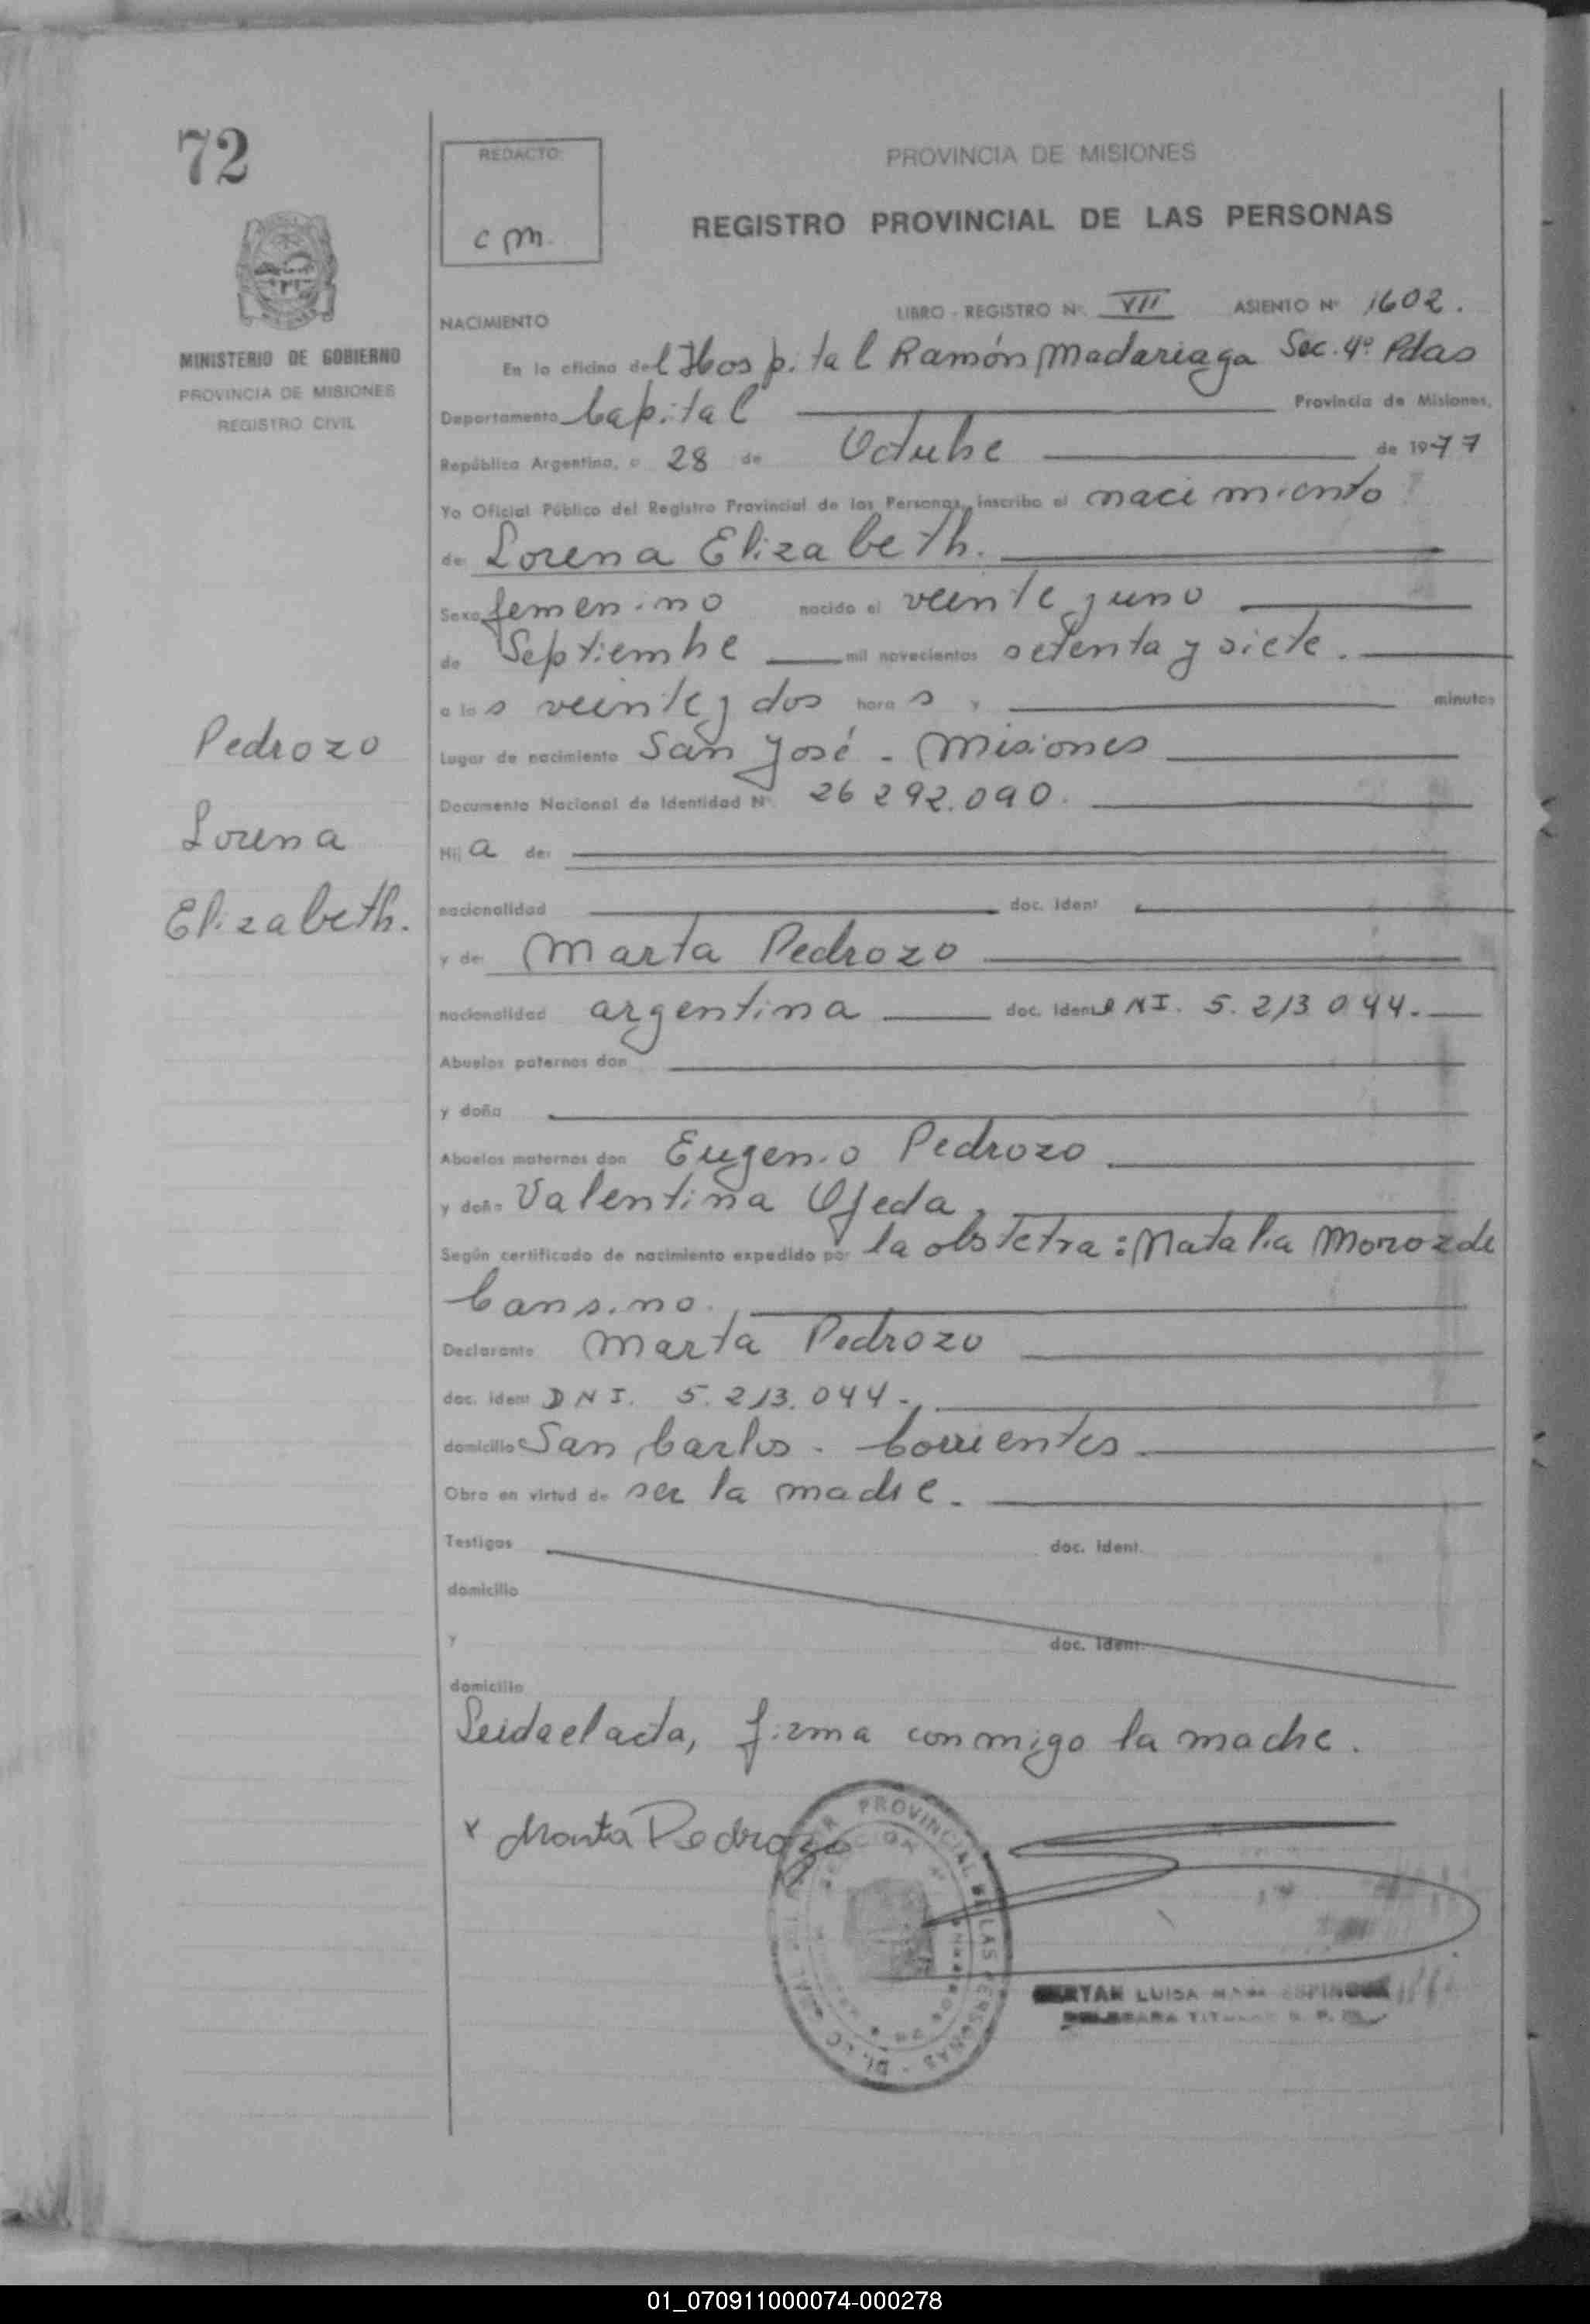 72
REDACTO:
c m.
PROVINCIA DE MISIONES
REGISTRO PROVINCIAL DE LAS PERSONAS
MINISTERIO DE GOBIERNO
PROVINCIA DE MISIONES
REGISTRO CIVIL
LIBRO - REGISTRO Nº VII ASIENTO Nº 1602.
NACIMIENTO
En la oficina del Hospital Ramón Madariaga Sec. 4º Pdas
Departamento Capital Provincia de Misiones,
República Argentina, a 28 de Octubre de 1977
Yo Oficial Público del Registro Provincial de las Personas, inscribo el nacimiento
de: Lorena Elizabeth.
Sexo femenino nacido el veinte y uno
de Septiembre mil novecientos setenta y siete.
a las veinte y dos horas y minutos
Pedrozo
Lorena
Elizabeth.
Lugar de nacimiento San José - Misiones
Documento Nacional de Identidad Nº 26 292.090.
Hija de:
nacionalidad doc. ident
y de: Marta Pedrozo
nacionalidad argentina doc. ident DNI. 5.213 044.
Abuelos paternos don
y doña
Abuelos maternos don Eugenio Pedrozo
y doña Valentina Ojeda.
Según certificado de nacimiento expedido por la obstetra: Natalia Moroz de
Cansino.
Declarante Marta Pedrozo
doc. ident DNI. 5.213.044-
domicilio San Carlos - Corrientes.
Obra en virtud de ser la madre.
Testigos doc. ident.
domicilio
y doc. ident.
domicilio
Leida el acta, firma conmigo la madre.
x Marta Pedrozo
PROVINCIAL DE LAS PERSONAS
LUISA
01_070911000074-000278